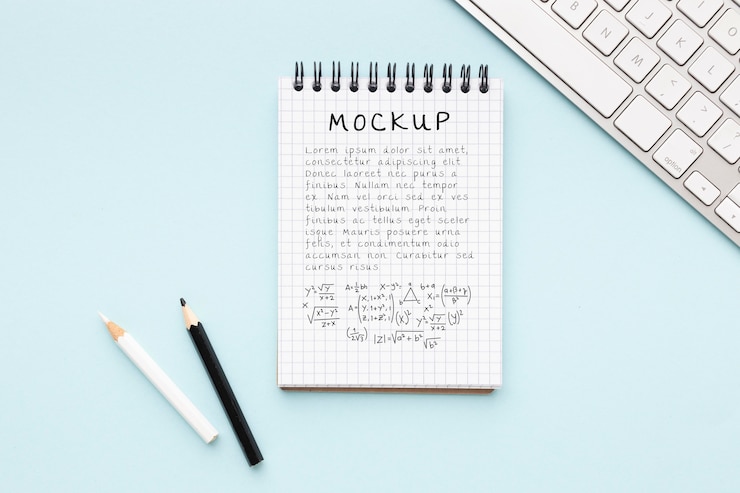 MOCKUP
Lorem ipsum dolor sit amet,
consectetur adipiscing elit
Donec laoreet nec purus a
finibus. Nullam nec tempor
ex. Nam vel orci sed ex ves
tibulum vestibulum. Proin
finibus ac tellus eget sceler
isque. Mauris posuere urna
felis, et condimentum odio
accumsan non. Curabitur sed
cursus risus.
A=½bh X-y²= b+a
|Z|=√a²+b²
√b²
I
O
J
K
L
B
N
M
<
>
option